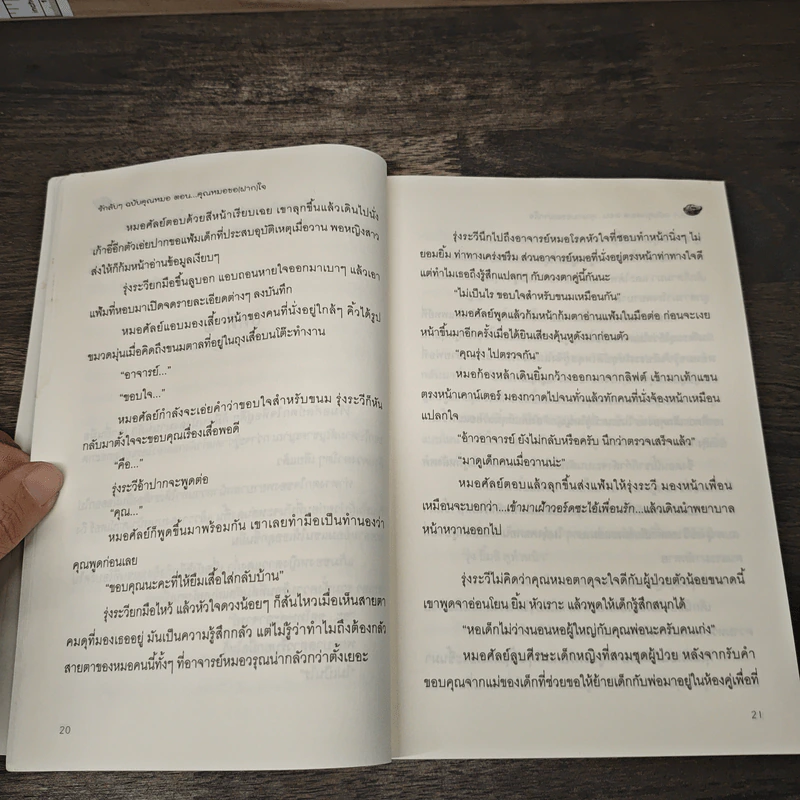 รักลับๆ ฉบับคุณหมอ ตอน...คุณหมอขอ(ฝาก)ใจ
หมอศัลย์ตอบด้วยสีหน้าเรียบเฉย เขาลุกขึ้นแล้วเดินไปนั่ง
เก้าอี้อีกตัวเอ่ยปากขอแฟ้มเด็กที่ประสบอุบัติเหตุเมื่อวาน พอหญิงสาว
ส่งให้ก็ก้มหน้าอ่านข้อมูลเงียบๆ
รุ่งระวียกมือขึ้นลูบอก แอบถอนหายใจออกมาเบาๆ แล้วเอา
แฟ้มที่หอบมาเปิดจดรายละเอียดต่างๆ ลงบันทึก
หมอศัลย์แอบมองเสี้ยวหน้าของคนที่นั่งอยู่ใกล้ๆ คิ้วได้รูป
ขมวดมุ่นเมื่อคิดถึงขนมตาลที่อยู่ในถุงเสื้อบนโต๊ะทำงาน
“อาจารย์...”
“ขอบใจ...”
หมอศัลย์กำลังจะเอ่ยคำว่าขอบใจสำหรับขนม รุ่งระวีก็หัน
กลับมาตั้งใจจะขอบคุณเรื่องเสื้อพอดี
“คือ...”
รุ่งระวีอ้าปากจะพูดต่อ
“คุณ...”
หมอศัลย์ก็พูดขึ้นมาพร้อมกัน เขาเลยทำมือเป็นทำนองว่า
คุณพูดก่อนเลย
“ขอบคุณนะคะที่ให้ยืมเสื้อใส่กลับบ้าน”
รุ่งระวียกมือไหว้ แล้วหัวใจดวงน้อยๆ ก็สั่นไหวเมื่อเห็นสายตา
คมดุที่มองเธออยู่ มันเป็นความรู้สึกกลัว แต่ไม่รู้ว่าทำไมถึงต้องกลัว
สายตาของหมอคนนี้ทั้งๆ ที่อาจารย์หมอวรุณน่ากลัวกว่าตั้งเยอะ
20
รุ่งระวีนึกไปถึงอาจารย์หมอโรคหัวใจที่ชอบทำหน้านิ่งๆ ไม่
ยอมยิ้ม ท่าทางเคร่งขรึม ส่วนอาจารย์หมอที่นั่งอยู่ตรงหน้าท่าทางใจดี
แต่ทำไมเธอถึงรู้สึกแปลกๆ กับดวงตาคู่นี้กันนะ
“ไม่เป็นไร ขอบใจสำหรับขนมเหมือนกัน”
หมอศัลย์พูดแล้วก้มหน้าก้มตาอ่านแฟ้มในมือต่อ ก่อนจะเงย
หน้าขึ้นมาอีกครั้งเมื่อได้ยินเสียงคุ้นหูดังมาก่อนตัว
“คุณรุ่ง ไปตรวจกัน”
หมอก้องหล้าเดินยิ้มกว้างออกมาจากลิฟต์ เข้ามาเท้าแขน
ตรงหน้าเคาน์เตอร์ มองกวาดไปจนทั่วแล้วทักคนที่นั่งจ้องหน้าเหมือน
แปลกใจ
“อ้าวอาจารย์ ยังไม่กลับหรือครับ นึกว่าตรวจเสร็จแล้ว”
“มาดูเด็กคนเมื่อวานน่ะ”
หมอศัลย์ตอบแล้วลุกขึ้นส่งแฟ้มให้รุ่งระวี มองหน้าเพื่อน
เหมือนจะบอกว่า...เข้ามาเฝ้าวอร์ดซะไอ้เพื่อนรัก...แล้วเดินนำพยาบาล
หน้าหวานออกไป
รุ่งระวีไม่คิดว่าคุณหมอตาดุจะใจดีกับผู้ป่วยตัวน้อยขนาดนี้
เขาพูดจาอ่อนโยน ยิ้ม หัวเราะ แล้วพูดให้เด็กรู้สึกสนุกได้
“หอเด็กไม่ว่างนอนหอผู้ใหญ่กับคุณพ่อนะครับคนเก่ง”
หมอศัลย์ลูบศีรษะเด็กหญิงที่สวมชุดผู้ป่วย หลังจากรับคำ
ขอบคุณจากแม่ของเด็กที่ช่วยขอให้ย้ายเด็กกับพ่อมาอยู่ในห้องคู่เพื่อที่
21